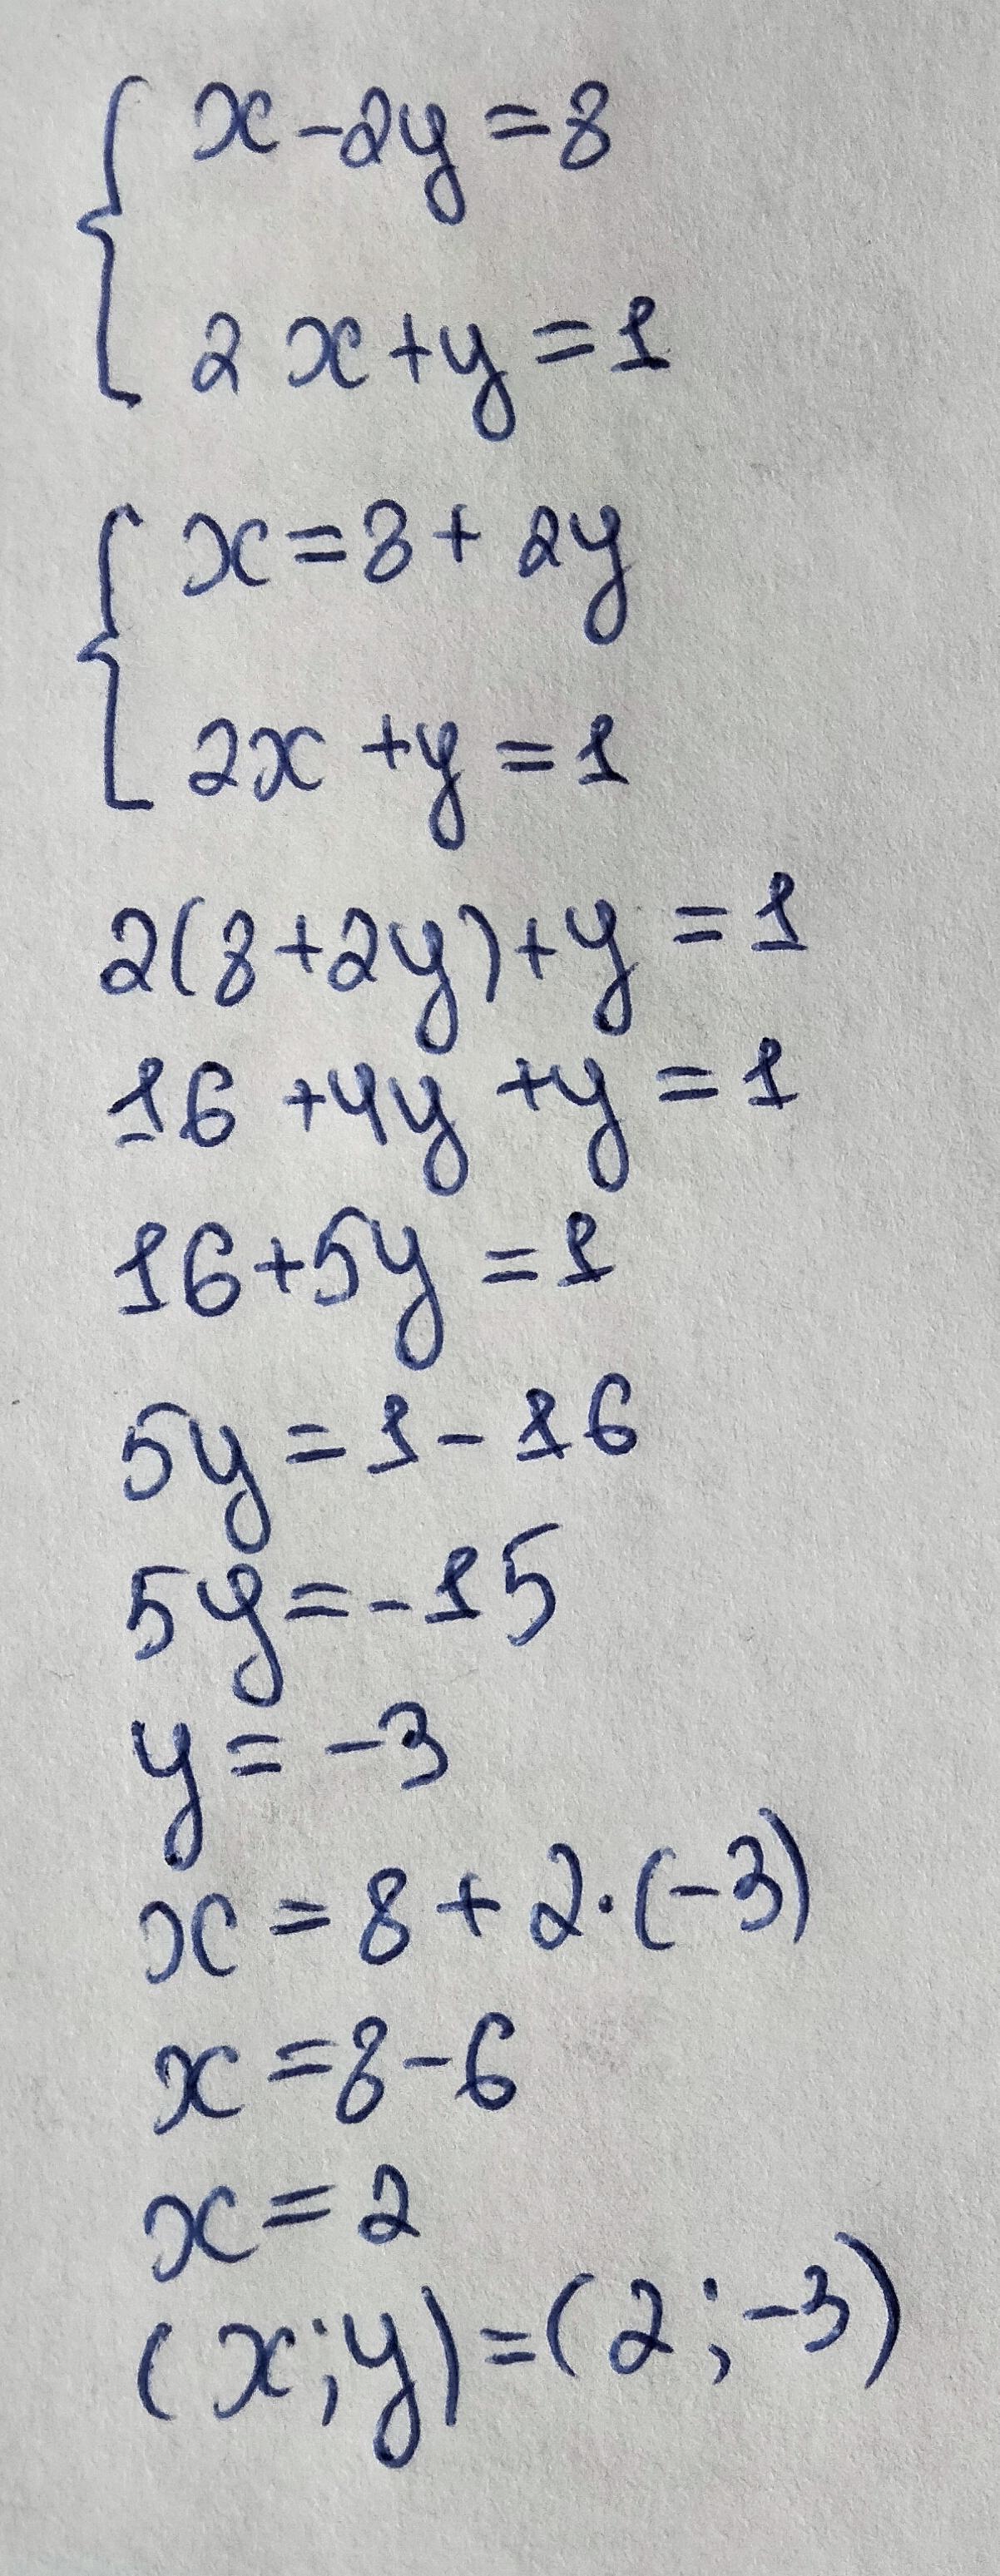 x-2y=8
2x+y=1
x=8+2y
2x+y=1
2(8+2y)+y=1
16+4y+y=1
16+5y=1
5y=1-16
5y=-15
y=-3
x=8+2·(-3)
x=8-6
x=2
(x;y)=(2;-3)